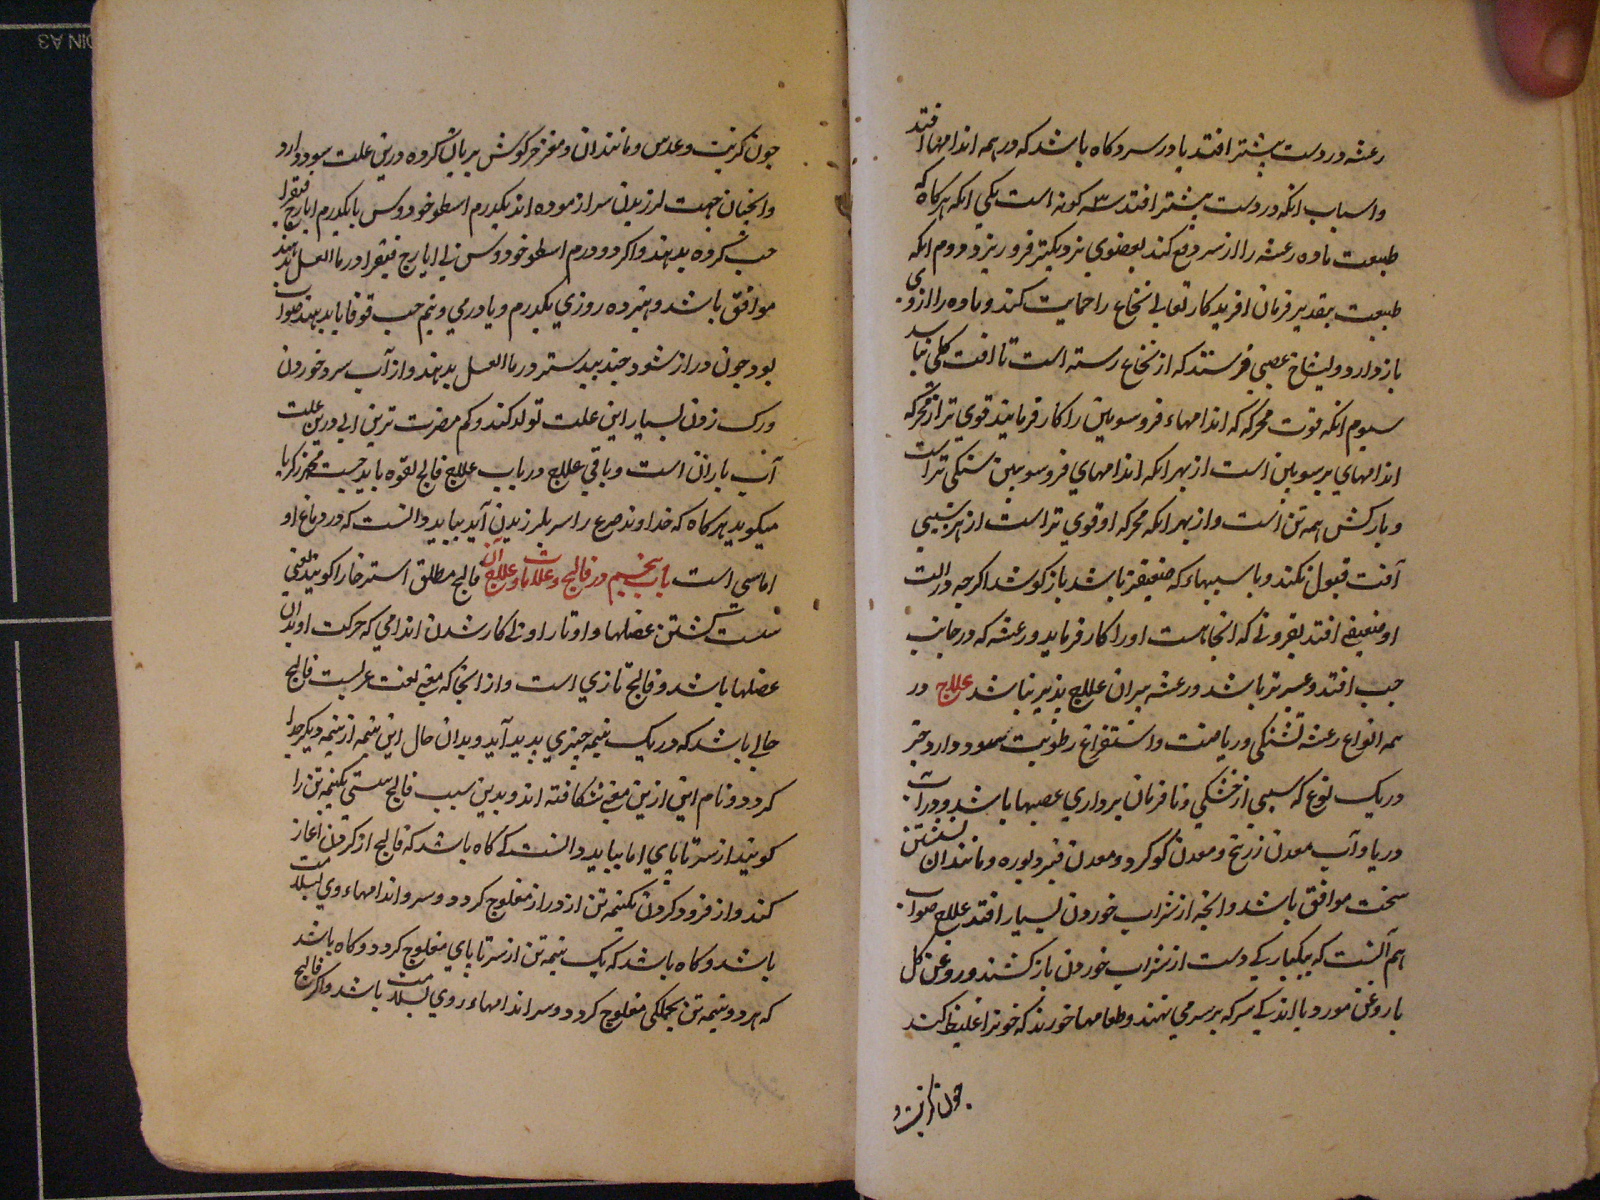 رعشه در دست بیشتر افتد یا در سر و کاه باشد که در همه اندامها افتد
و اسباب انکه در دست بیشتر افتد سه کونه است یکی انکه هرکاه که
طبیعت ماده رعشه را از سر دفع کند بعضوی نزدیکتر فرو ریزد دوم انکه
طبیعت بتقدیر و فرمان افریدکار تعالی نخاع را حمایت کند و ماده را از وی
باز دارد و بشاخ عصبی فرستد که از نخاع رسته است تا افت کلی نباشد
سیوم انکه قوت محرکه که اندامهاء فروسویین را کار فرماید قوی تر از محرکه
اندامهای برسویین است از بهر انکه اندامهای فروسویین سنکی تر است
و بارکش همه تن است و از بهر انکه محرکه او قوی تر است از هر سببی
آفت قبول نکند و با سببهاء که ضعیفتر باشد باز کوشد اکرچه در الت
او ضعیفی افتد بقروتی که انجا هست او را کار فرماید و رعشه که در جانب
چپ افتد و عسرتر باشد و رعشه پیران علاج پذیر نباشد علاج در
همه انواع رعشه تشنکی و ریاضت و استفراغ رطوبت سود دارد جز
در یک نوع که سببی از خشکی و نافرمان برداری عصبها باشد و در آب
دریا و آب معدن زرنیخ و معدن کوکرد و معدن قیر و بوره و مانند ان نشستن
سخت موافق باشد و انچه از شراب خوردن بسیار افتد علاج صواب
هم آنست که بیکبارکی دست از شراب خوردن باز کشند و روغن کل
با روغن مورد با اندکی سرکه بر سر می نهند و طعامها خورند که خون را غلیظ کند
چون کرنب و
چون کرنب و عدس و مانند ان و مغز خرکوش بریان کرده درین علت سود دارد
و انجبان جهت لرزیدن سر ازموده اند یکدرم اسطوخودوس با یکدرم ایارج فیقرا
حب کرده بدهند و اکر دو درم اسطوخودوس بی ایارج فیقرا در ماالعسل بدهند
موافق باشد و هر ده روزی یکدرم و یا درمی و نیم حب قوقایا بدهند صواب
بود چون دراز شود جندبیدستر در ماالعسل بدهند و از آب سرد خوردن
و رک زدن بسیار این علت تولد کند و کم مضرت ترین ابی درین علت
آب باران است و باقی علاج در باب علاج فالج لقوه باید جست محمد زکریا
میکوید هرکاه که خداوند صرع را سر بلرزیدن آید بباید دانست که در دماغ او
اماسی است باب پنجم در فالج و علامات و علاج آن فالج مطلق استرخا را کویند یعنی
سست کشتن عضلها و اوتار او بی کار شدن اندامی که حرکت او بدان
عضلها باشد و فالج تازی است و از انجا که معنی لغت عربست فالج
حالی باشد که در یک نیمه چیزی پدید آید و بدان حال این نیمه از نیمه دیکر جدا
کردد و نام این ازین معنی شکافته اند و بدین سبب فالج سستی یکنیمه تن را
کویند از سر تا پای اما بباید دانست که کاه باشد که فالج از کردن اغاز
کند و از فرود کردن یکنیمه تن از دراز مفلوج کردد و سر و اندامهاء روی بسلامت
باشد و کاه باشد که یک نیمه تن از سر تا پای مفلوج کردد و کاه باشد
که هر دو نیمه تن بجملکی مفلوج کردد و سر اندامهاء روی بسلامت باشد و اکر فالج